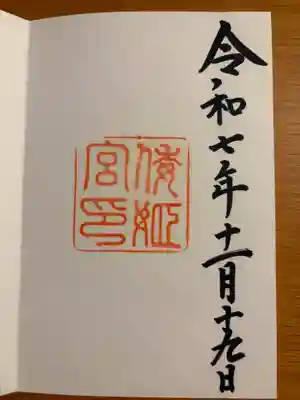 令和七年十一月十九日
倭姫
宮印